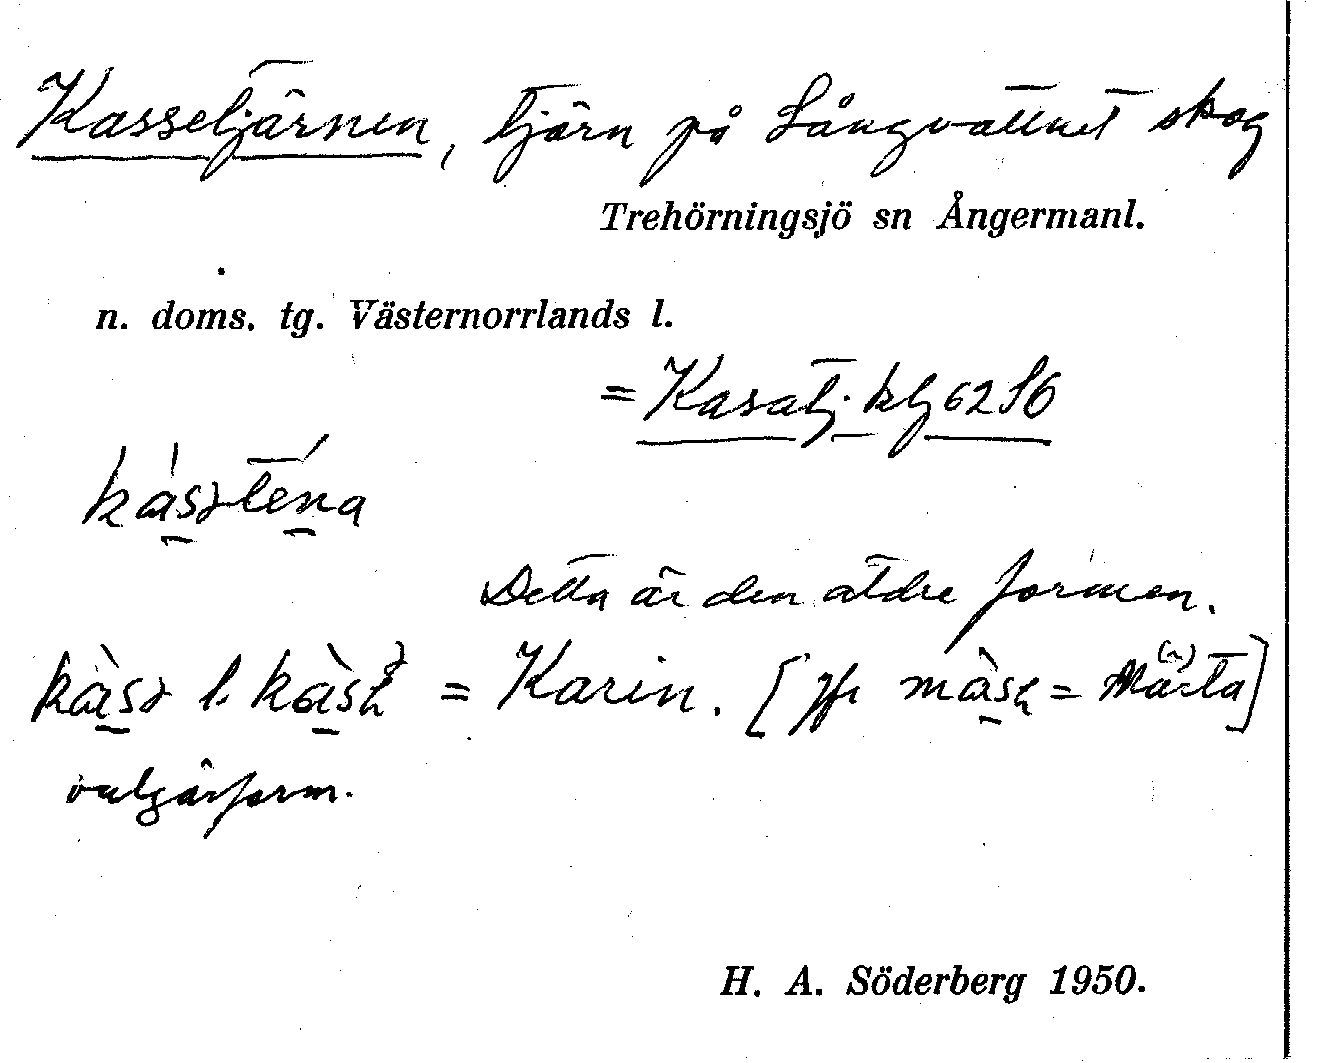 Kassetjärnen, tjärn på Långvattnet skog
Trehörningsjö sn Ångermanl.
n. doms. tg. Västernorrlands l.
= Kasatj. kbg 62 S6
Detta är den äldre formen.
= Karin. [jfr = Märta]
vulgärform.
H. A. Söderberg 1950.